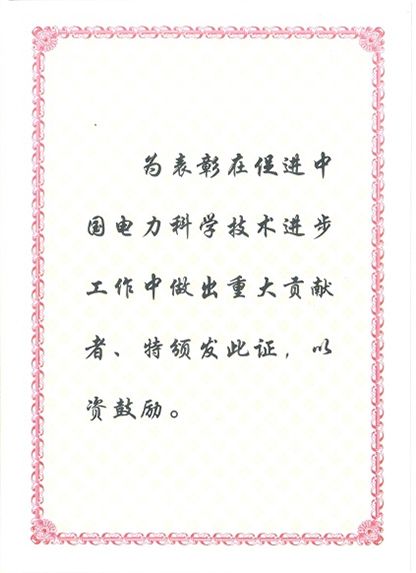 为表彰在促进中
国电力科学技术进步
工作中做出重大贡献
者、特颁发此证，以
资鼓励。